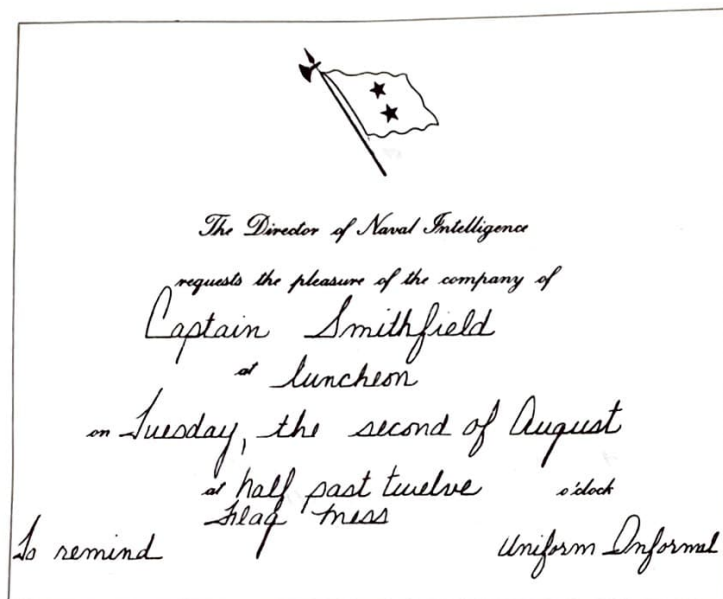 The Director of Naval Intelligence
requests the pleasure of the company of
Captain Smithfield
at luncheon
on Tuesday, the second of August
at half past twelve o'clock
Flag Mess
To remind Uniform Informal